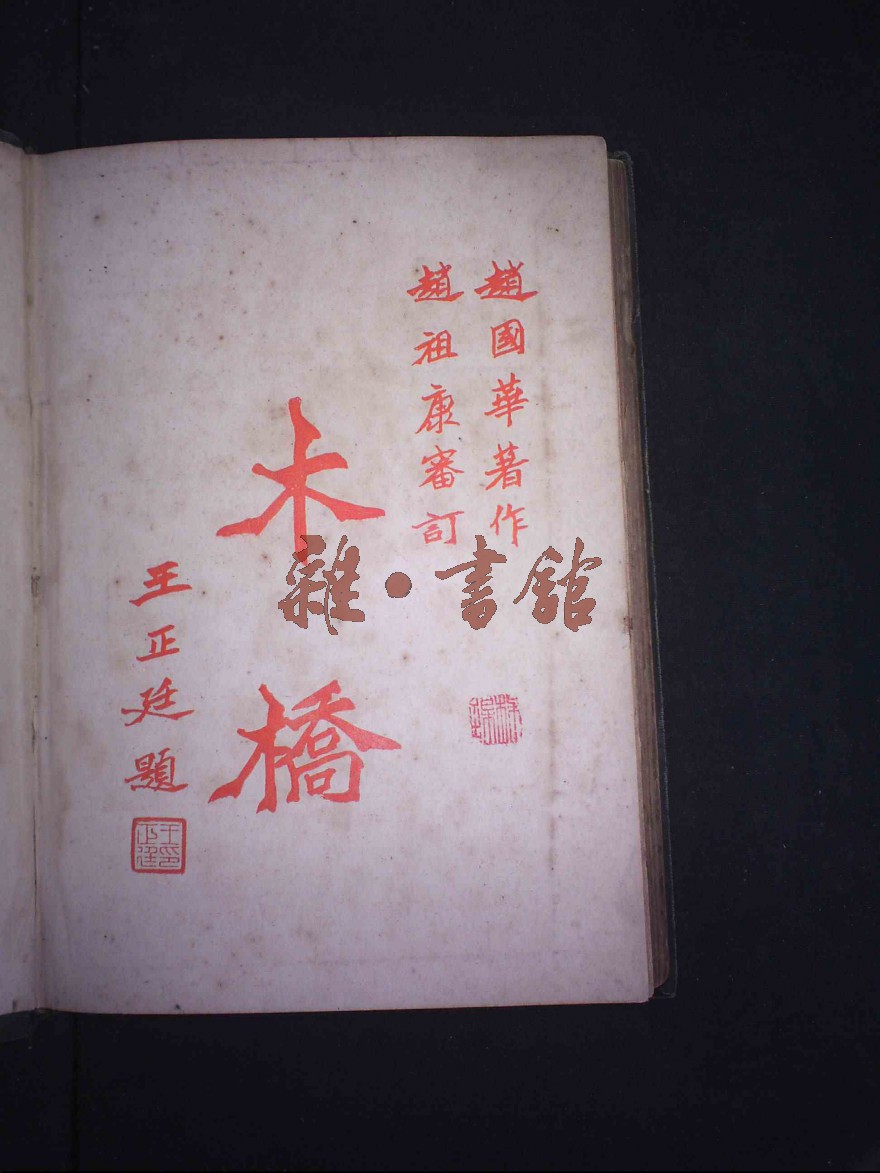 趙國華著作
趙祖康審訂
木橋
王正廷題
王正廷印
雜·書館